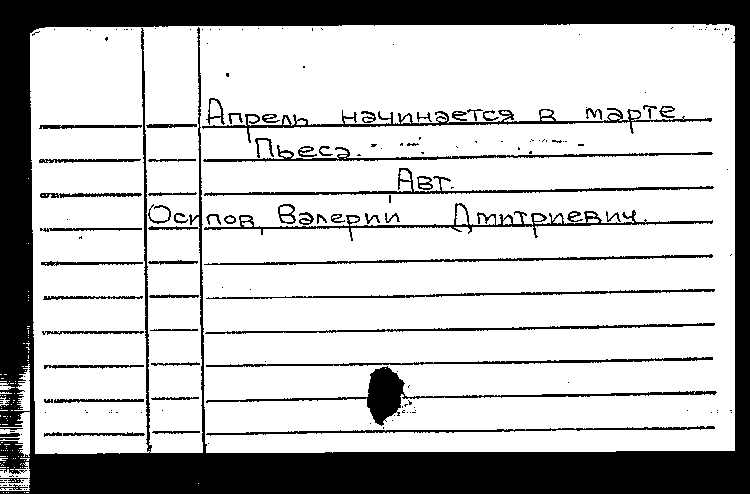 Апрель начинается в марте.
Пьеса.
Авт.
Осипов, Валерий Дмитриевич.